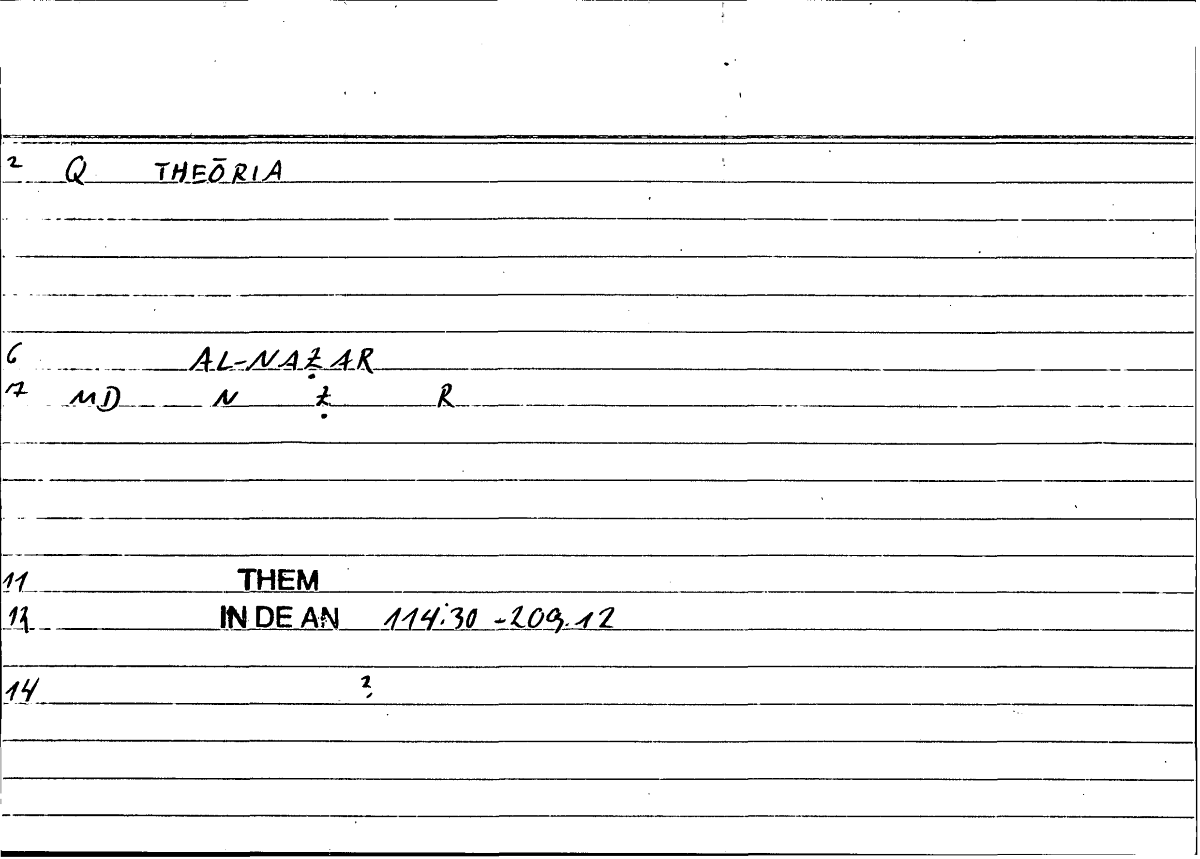 2 Q THEŌRIA
6 AL-NAẒAR
7 MD N Ẓ R
11 THEM
12 IN DE AN 114:30 -209.12
14 ?